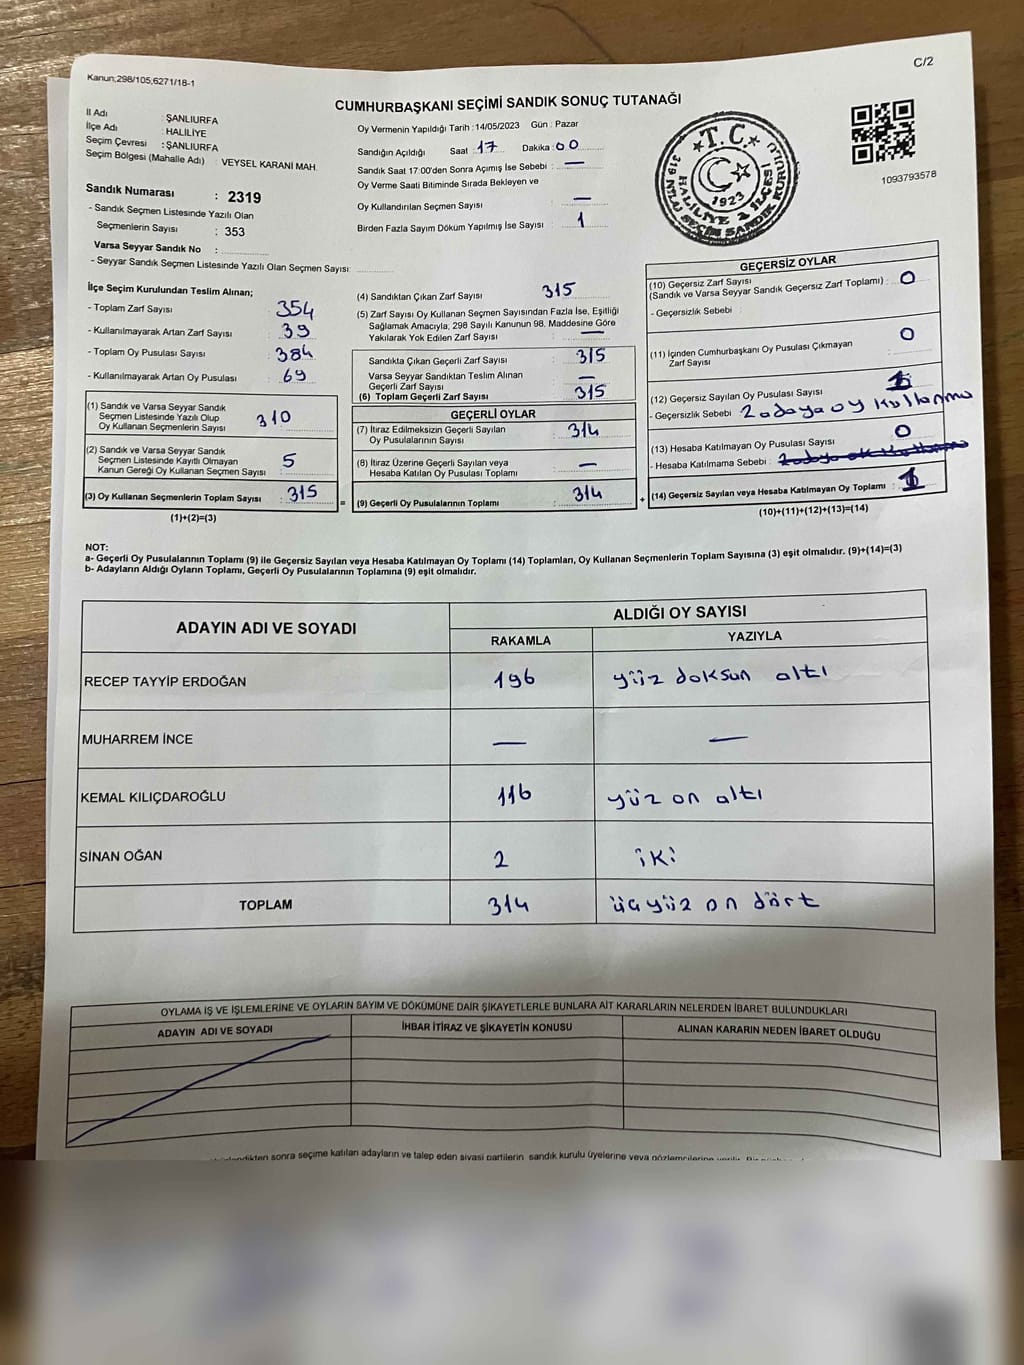 Kanun;298/105,6271/18-1
C/2
CUMHURBAŞKANI SEÇİMİ SANDIK SONUÇ TUTANAĞI
İl Adı : ŞANLIURFA
İlçe Adı : HALİLİYE
Seçim Çevresi : ŞANLIURFA
Seçim Bölgesi (Mahalle Adı) : VEYSEL KARANİ MAH.
Sandık Numarası : 2319
- Sandık Seçmen Listesinde Yazılı Olan
Seçmenlerin Sayısı : 353
Varsa Seyyar Sandık No :
- Seyyar Sandık Seçmen Listesinde Yazılı Olan Seçmen Sayısı:
Oy Vermenin Yapıldığı Tarih : 14/05/2023 Gün : Pazar
Sandığın Açıldığı Saat : 17 Dakika : 00
Sandık Saat 17:00'den Sonra Açımış İse Sebebi : —
Oy Verme Saati Bitiminde Sırada Bekleyen ve
Oy Kullandırılan Seçmen Sayısı : —
Birden Fazla Sayım Döküm Yapılmış İse Sayısı : 1
T.C.
1923
319 NOLU SEÇİM SANDIK KURULU
HALİLİYE 2 İLÇESİ
1093793578
İlçe Seçim Kurulundan Teslim Alınan;
- Toplam Zarf Sayısı : 354
- Kullanılmayarak Artan Zarf Sayısı : 39
- Toplam Oy Pusulası Sayısı : 384
- Kullanılmayarak Artan Oy Pusulası : 69
(1) Sandık ve Varsa Seyyar Sandık
Seçmen Listesinde Yazılı Olup
Oy Kullanan Seçmenlerin Sayısı : 310
(2) Sandık ve Varsa Seyyar Sandık
Seçmen Listesinde Kayıtlı Olmayan
Kanun Gereği Oy Kullanan Seçmen Sayısı : 5
(3) Oy Kullanan Seçmenlerin Toplam Sayısı : 315
(1)+(2)=(3)
(4) Sandıktan Çıkan Zarf Sayısı 315
(5) Zarf Sayısı Oy Kullanan Seçmen Sayısından Fazla İse, Eşitliği
Sağlamak Amacıyla, 298 Sayılı Kanunun 98. Maddesine Göre
Yakılarak Yok Edilen Zarf Sayısı : —
Sandıkta Çıkan Geçerli Zarf Sayısı : 315
Varsa Seyyar Sandıktan Teslim Alınan
Geçerli Zarf Sayısı : —
(6) Toplam Geçerli Zarf Sayısı : 315
GEÇERLİ OYLAR
(7) İtiraz Edilmeksizin Geçerli Sayılan
Oy Pusulalarının Sayısı : 314
(8) İtiraz Üzerine Geçerli Sayılan veya
Hesaba Katılan Oy Pusulası Toplamı : —
= (9) Geçerli Oy Pusulalarının Toplamı : 314 +
GEÇERSİZ OYLAR
(10) Geçersiz Zarf Sayısı
(Sandık ve Varsa Seyyar Sandık Geçersiz Zarf Toplamı) : 0
- Geçersizlik Sebebi :
(11) İçinden Cumhurbaşkanı Oy Pusulası Çıkmayan
Zarf Sayısı : 0
(12) Geçersiz Sayılan Oy Pusulası Sayısı : 1
- Geçersizlik Sebebi 2 adaya oy kullanma
(13) Hesaba Katılmayan Oy Pusulası Sayısı : 0
- Hesaba Katılmama Sebebi :
(14) Geçersiz Sayılan veya Hesaba Katılmayan Oy Toplamı : 1
(10)+(11)+(12)+(13)=(14)
NOT:
a- Geçerli Oy Pusulalarının Toplamı (9) ile Geçersiz Sayılan veya Hesaba Katılmayan Oy Toplamı (14) Toplamları, Oy Kullanan Seçmenlerin Toplam Sayısına (3) eşit olmalıdır. (9)+(14)=(3)
b- Adayların Aldığı Oyların Toplamı, Geçerli Oy Pusulalarının Toplamına (9) eşit olmalıdır.
ADAYIN ADI VE SOYADI
ALDIĞI OY SAYISI
RAKAMLA YAZIYLA
RECEP TAYYİP ERDOĞAN 196 yüz doksan altı
MUHARREM İNCE — —
KEMAL KILIÇDAROĞLU 116 yüz on altı
SİNAN OĞAN 2 iki
TOPLAM 314 üçyüz on dört
OYLAMA İŞ VE İŞLEMLERİNE VE OYLARIN SAYIM VE DÖKÜMÜNE DAİR ŞİKAYETLERLE BUNLARA AİT KARARLARIN NELERDEN İBARET BULUNDUKLARI
ADAYIN ADI VE SOYADI İHBAR İTİRAZ VE ŞİKAYETİN KONUSU ALINAN KARARIN NEDEN İBARET OLDUĞU
sonra seçime katılan adayların ve talep eden siyasi partilerin sandık kurulu üyelerine veya gözlemcilerine